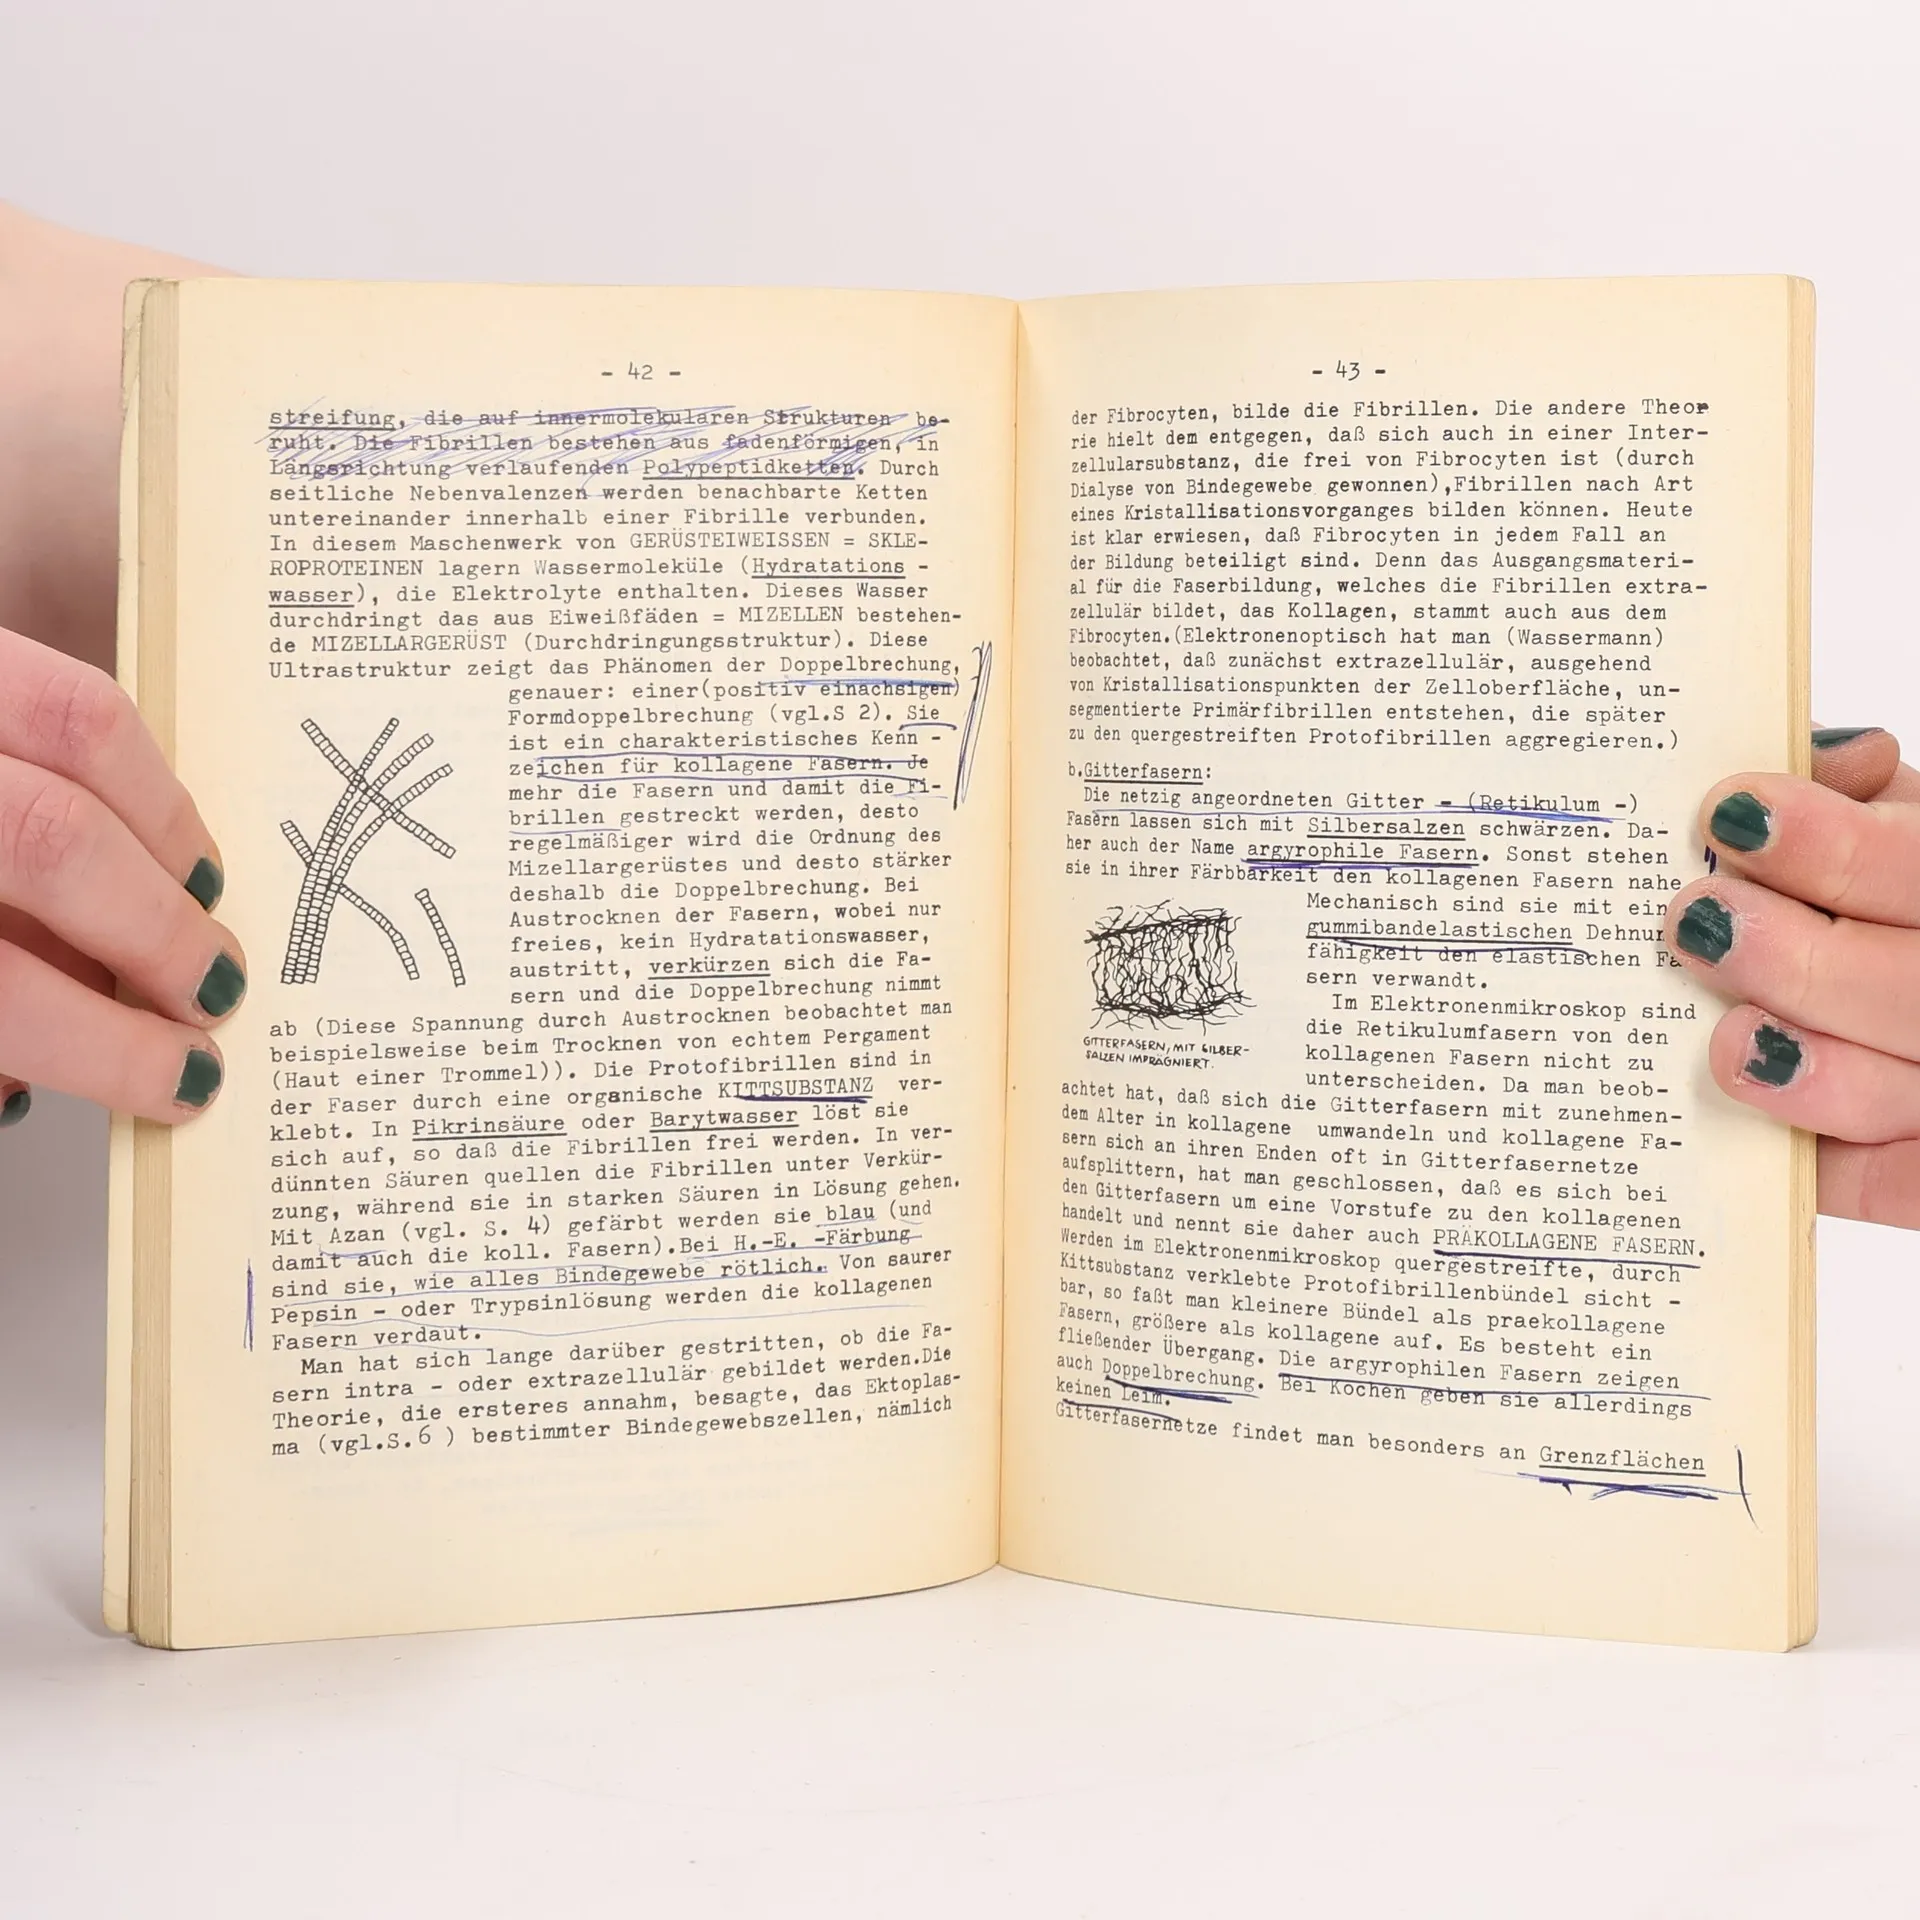 - 42 -
streifung, die auf innermolekularen Strukturen be-
ruht. Die Fibrillen bestehen aus fadenförmigen, in
Längsrichtung verlaufenden Polypeptidketten. Durch
seitliche Nebenvalenzen werden benachbarte Ketten
untereinander innerhalb einer Fibrille verbunden.
In diesem Maschenwerk von GERÜSTEIWEISSEN = SKLE-
ROPROTEINEN lagern Wassermoleküle (Hydratations -
wasser), die Elektrolyte enthalten. Dieses Wasser
durchdringt das aus Eiweißfäden = MIZELLEN bestehen-
de MIZELLARGERÜST (Durchdringungsstruktur). Diese
Ultrastruktur zeigt das Phänomen der Doppelbrechung,
genauer: einer(positiv einachsigen)
Formdoppelbrechung (vgl.S 2). Sie
ist ein charakteristisches Kenn -
zeichen für kollagene Fasern. Je
mehr die Fasern und damit die Fi-
brillen gestreckt werden, desto
regelmäßiger wird die Ordnung des
Mizellargerüstes und desto stärker
deshalb die Doppelbrechung. Bei
Austrocknen der Fasern, wobei nur
freies, kein Hydratationswasser,
austritt, verkürzen sich die Fa-
sern und die Doppelbrechung nimmt
ab (Diese Spannung durch Austrocknen beobachtet man
beispielsweise beim Trocknen von echtem Pergament
(Haut einer Trommel)). Die Protofibrillen sind in
der Faser durch eine organische KITTSUBSTANZ ver-
klebt. In Pikrinsäure oder Barytwasser löst sie
sich auf, so daß die Fibrillen frei werden. In ver-
dünnten Säuren quellen die Fibrillen unter Verkür-
zung, während sie in starken Säuren in Lösung gehen.
Mit Azan (vgl. S. 4) gefärbt werden sie blau (und
damit auch die koll. Fasern).Bei H.-E. -Färbung
sind sie, wie alles Bindegewebe rötlich. Von saurer
Pepsin - oder Trypsinlösung werden die kollagenen
Fasern verdaut.
Man hat sich lange darüber gestritten, ob die Fa-
sern intra - oder extrazellulär gebildet werden.Die
Theorie, die ersteres annahm, besagte, das Ektoplas-
ma (vgl.S.6 ) bestimmter Bindegewebszellen, nämlich
- 43 -
der Fibrocyten, bilde die Fibrillen. Die andere Theor
rie hielt dem entgegen, daß sich auch in einer Inter-
zellularsubstanz, die frei von Fibrocyten ist (durch
Dialyse von Bindegewebe gewonnen),Fibrillen nach Art
eines Kristallisationsvorganges bilden können. Heute
ist klar erwiesen, daß Fibrocyten in jedem Fall an
der Bildung beteiligt sind. Denn das Ausgangsmateri-
al für die Faserbildung, welches die Fibrillen extra-
zellulär bildet, das Kollagen, stammt auch aus dem
Fibrocyten.(Elektronenoptisch hat man (Wassermann)
beobachtet, daß zunächst extrazellulär, ausgehend
von Kristallisationspunkten der Zelloberfläche, un-
segmentierte Primärfibrillen entstehen, die später
zu den quergestreiften Protofibrillen aggregieren.)
b.Gitterfasern:
Die netzig angeordneten Gitter - (Retikulum -)
Fasern lassen sich mit Silbersalzen schwärzen. Da-
her auch der Name argyrophile Fasern. Sonst stehen
sie in ihrer Färbbarkeit den kollagenen Fasern nahe
Mechanisch sind sie mit ein
gummibandelastischen Dehnun
fähigkeit den elastischen Fa
sern verwandt.
Im Elektronenmikroskop sind
die Retikulumfasern von den
kollagenen Fasern nicht zu
unterscheiden. Da man beob-
GITTERFASERN, MIT SILBER-
SALZEN IMPRÄGNIERT.
achtet hat, daß sich die Gitterfasern mit zunehmen-
dem Alter in kollagene umwandeln und kollagene Fa-
sern sich an ihren Enden oft in Gitterfasernetze
aufsplittern, hat man geschlossen, daß es sich bei
den Gitterfasern um eine Vorstufe zu den kollagenen
handelt und nennt sie daher auch PRÄKOLLAGENE FASERN.
Werden im Elektronenmikroskop quergestreifte, durch
Kittsubstanz verklebte Protofibrillenbündel sicht -
bar, so faßt man kleinere Bündel als praekollagene
Fasern, größere als kollagene auf. Es besteht ein
fließender Übergang. Die argyrophilen Fasern zeigen
auch Doppelbrechung. Bei Kochen geben sie allerdings
keinen Leim.
Gitterfasernetze findet man besonders an Grenzflächen